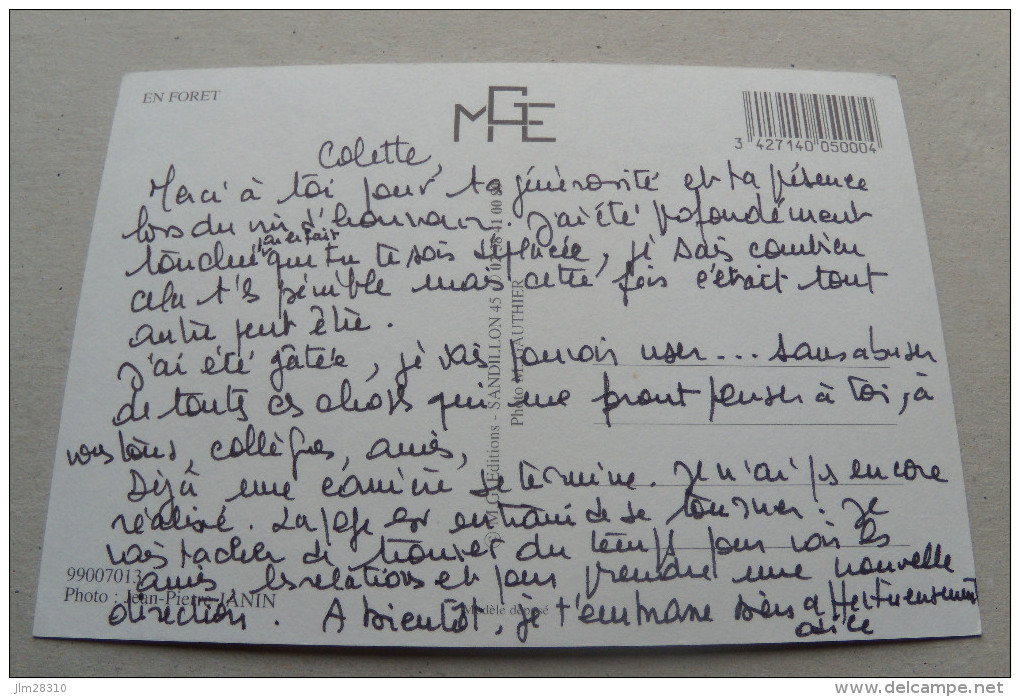 EN FORET
MGE
3 427140 050004
Colette,
Merci à toi pour ta générosité et ta présence
lors du vin d'honneur. J'ai été profondément
touchée que tu te sois déplacée, je sais combien
cela t'es pénible mais cette fois c'était tout
autre peut être.
J'ai été gâtée, je vais pouvoir user... sans abuser
de toutes ces choses qui me feront penser à toi, à
vous tous, collègues, amis,
Déjà une carrière se termine. Je n'ai pas encore
réalisé. La page est en train de se tourner. Je
vais tacher de trouver du temps pour voir les
amis les relations et pour prendre une nouvelle
direction. A bientôt, je t'embrasse bien affectueusement
99007013
Photo : Jean-Pierre JANIN
Modèle déposé
© M.G. Editions - SANDILLON 45 02 38 41 00
Photo M. GAUTHIER
jlm28310
www.delcampe.net